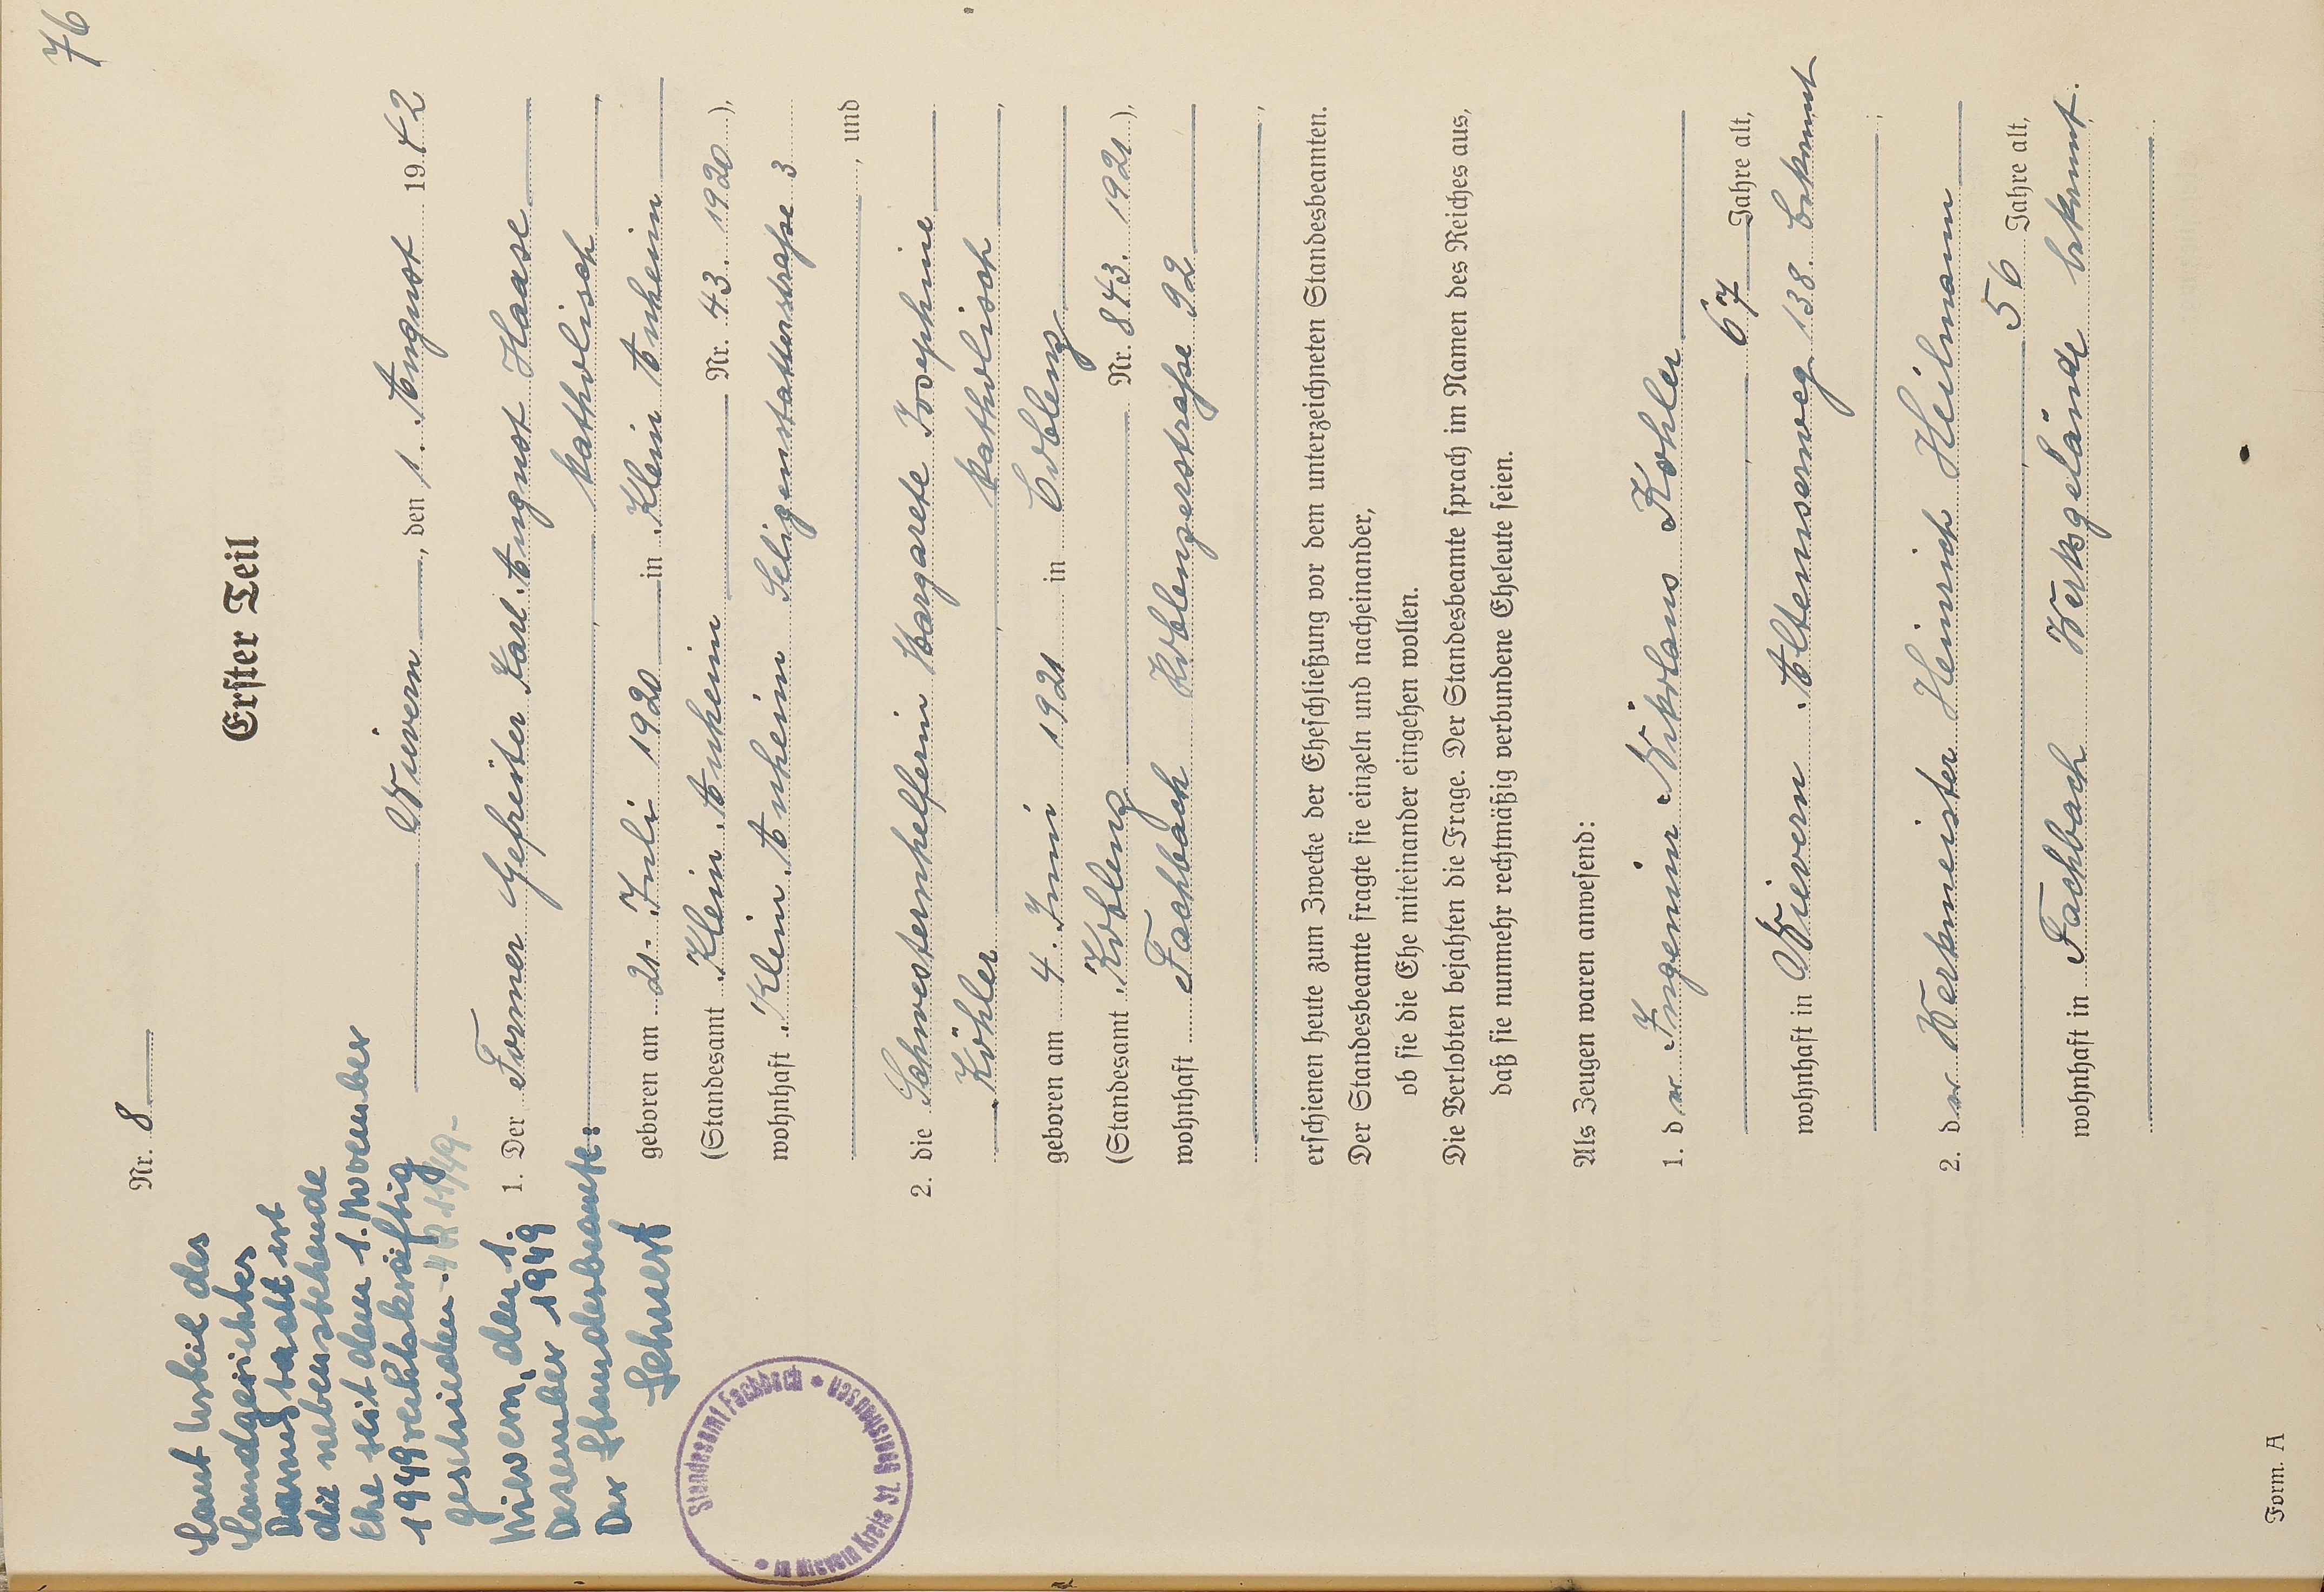 76
Nr. 8
Erster Teil
Nievern, den 1. August 1942
1. Der Former Gefreiter Karl August Haase
katholisch
geboren am 21. Juli 1920 in Klein Auheim
(Standesamt Klein Auheim Nr. 43. 1920),
wohnhaft Klein Auheim Seligenstatterstraße 3
, und
2. die Schwesternhelferin Margarete Josephine
Köhler katholisch
geboren am 4. Juni 1921 in Coblenz
(Standesamt Koblenz Nr. 843. 1921),
wohnhaft Fachbach Koblenzerstraße 92
erschienen heute zum Zwecke der Eheschließung vor dem unterzeichneten Standesbeamten.
Der Standesbeamte fragte sie einzeln und nacheinander,
ob sie die Ehe miteinander eingehen wollen.
Die Verlobten bejahten die Frage. Der Standesbeamte sprach im Namen des Reiches aus,
daß sie nunmehr rechtmäßig verbundene Eheleute seien.
Als Zeugen waren anwesend:
1. der Ingenieur Nikolaus Kohler
67 Jahre alt,
wohnhaft in Nievern Altemserweg 138. bekannt
;
2. der Werkmeister Heinrich Heilmann
56 Jahre alt,
wohnhaft in Fachbach Werksgelände bekannt.
Laut Urteil des
Landgerichtes
Darmstadt ist
die nebenstehende
Ehe seit dem 1. November
1949 rechtskräftig
geschieden. 4 R 11/49-
Nievern, den 1.
Dezember 1949
Der Standesbeamte:
Lehnert
Standesamt Fachbach
in Nievern Kreis St. Goarshausen
Form. A